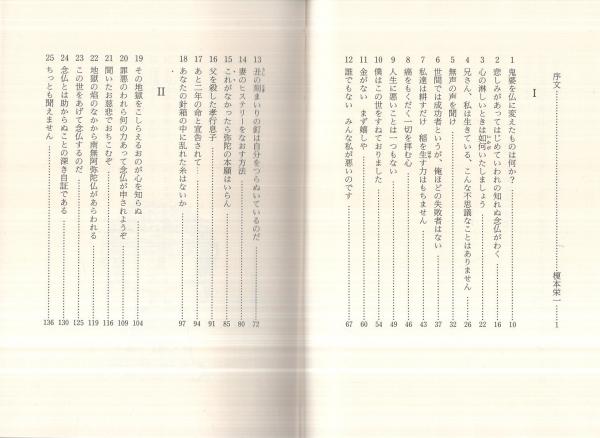 序文……榎本栄一…1
I
1 鬼婆を仏に変えたものは何か？……10
2 悲しみがあってはじめていわれの知れぬ念仏がわく……16
3 心の淋しいときは如何いたしましょう……22
4 兄さん、私は生きている、こんな不思議なことはありません……26
5 無声の声を聞け……32
6 世間では成功者というが、俺ほどの失敗者はない……37
7 私達は耕すだけ 稲を生す力はもちません……43
8 癌をもくだく一切を拝む心……46
9 人生に悪いことは一つもない……49
10 僕はこの世をすねておりました……54
11 金がない まず嬉しや……60
12 誰でもない みんな私が悪いのです……67
13 丑の刻まいりの釘は自分をつらぬいているのだ……72
14 妻のヒステリーをなおす方法……80
15 これがなかったら弥陀の本願はいらん……85
16 父を殺した孝行息子……91
17 あと二年の命と宣告されて……94
18 あなたの針箱の中に乱れた糸はないか……97
II
19 その地獄をこしらえるおのが心を知らぬ……104
20 罪悪のわれら何の力あって念仏が申されようぞ……109
21 聞いたお慈悲でおちこむぞ……116
22 地獄の焰のなかから南無阿弥陀仏があらわれる……119
23 この世をあげて念仏するのだ……125
24 念仏とは助からぬことの深き自証である……130
25 ちっとも聞えません……136